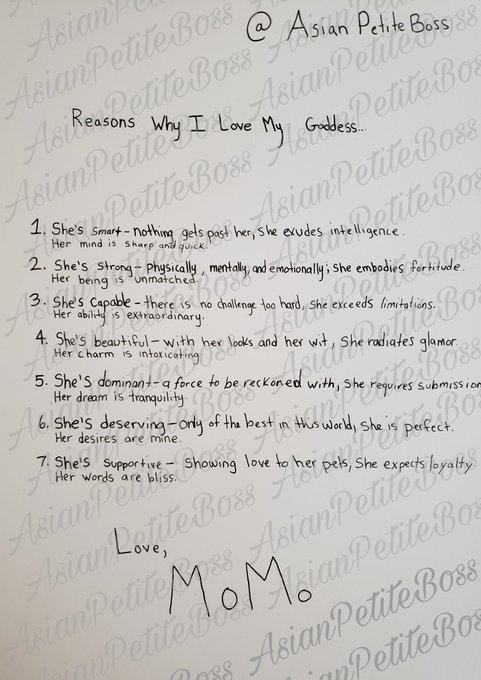 @ Asian Petite Boss
Reasons Why I Love My Goddess...
1. She's smart - nothing gets past her, she exudes intelligence.
Her mind is sharp and quick.
2. She's strong - physically, mentally, and emotionally; she embodies fortitude.
Her being is unmatched.
3. She's capable - there is no challenge too hard, she exceeds limitations.
Her ability is extraordinary.
4. She's beautiful - with her looks and her wit, she radiates glamor.
Her charm is intoxicating
5. She's dominant - a force to be reckoned with, she requires submission
Her dream is tranquility.
6. She's deserving - only of the best in this world, she is perfect.
Her desires are mine.
7. She's supportive - showing love to her pets, she expects loyalty.
Her words are bliss.
Love,
MoMo
AsianPetiteBoss